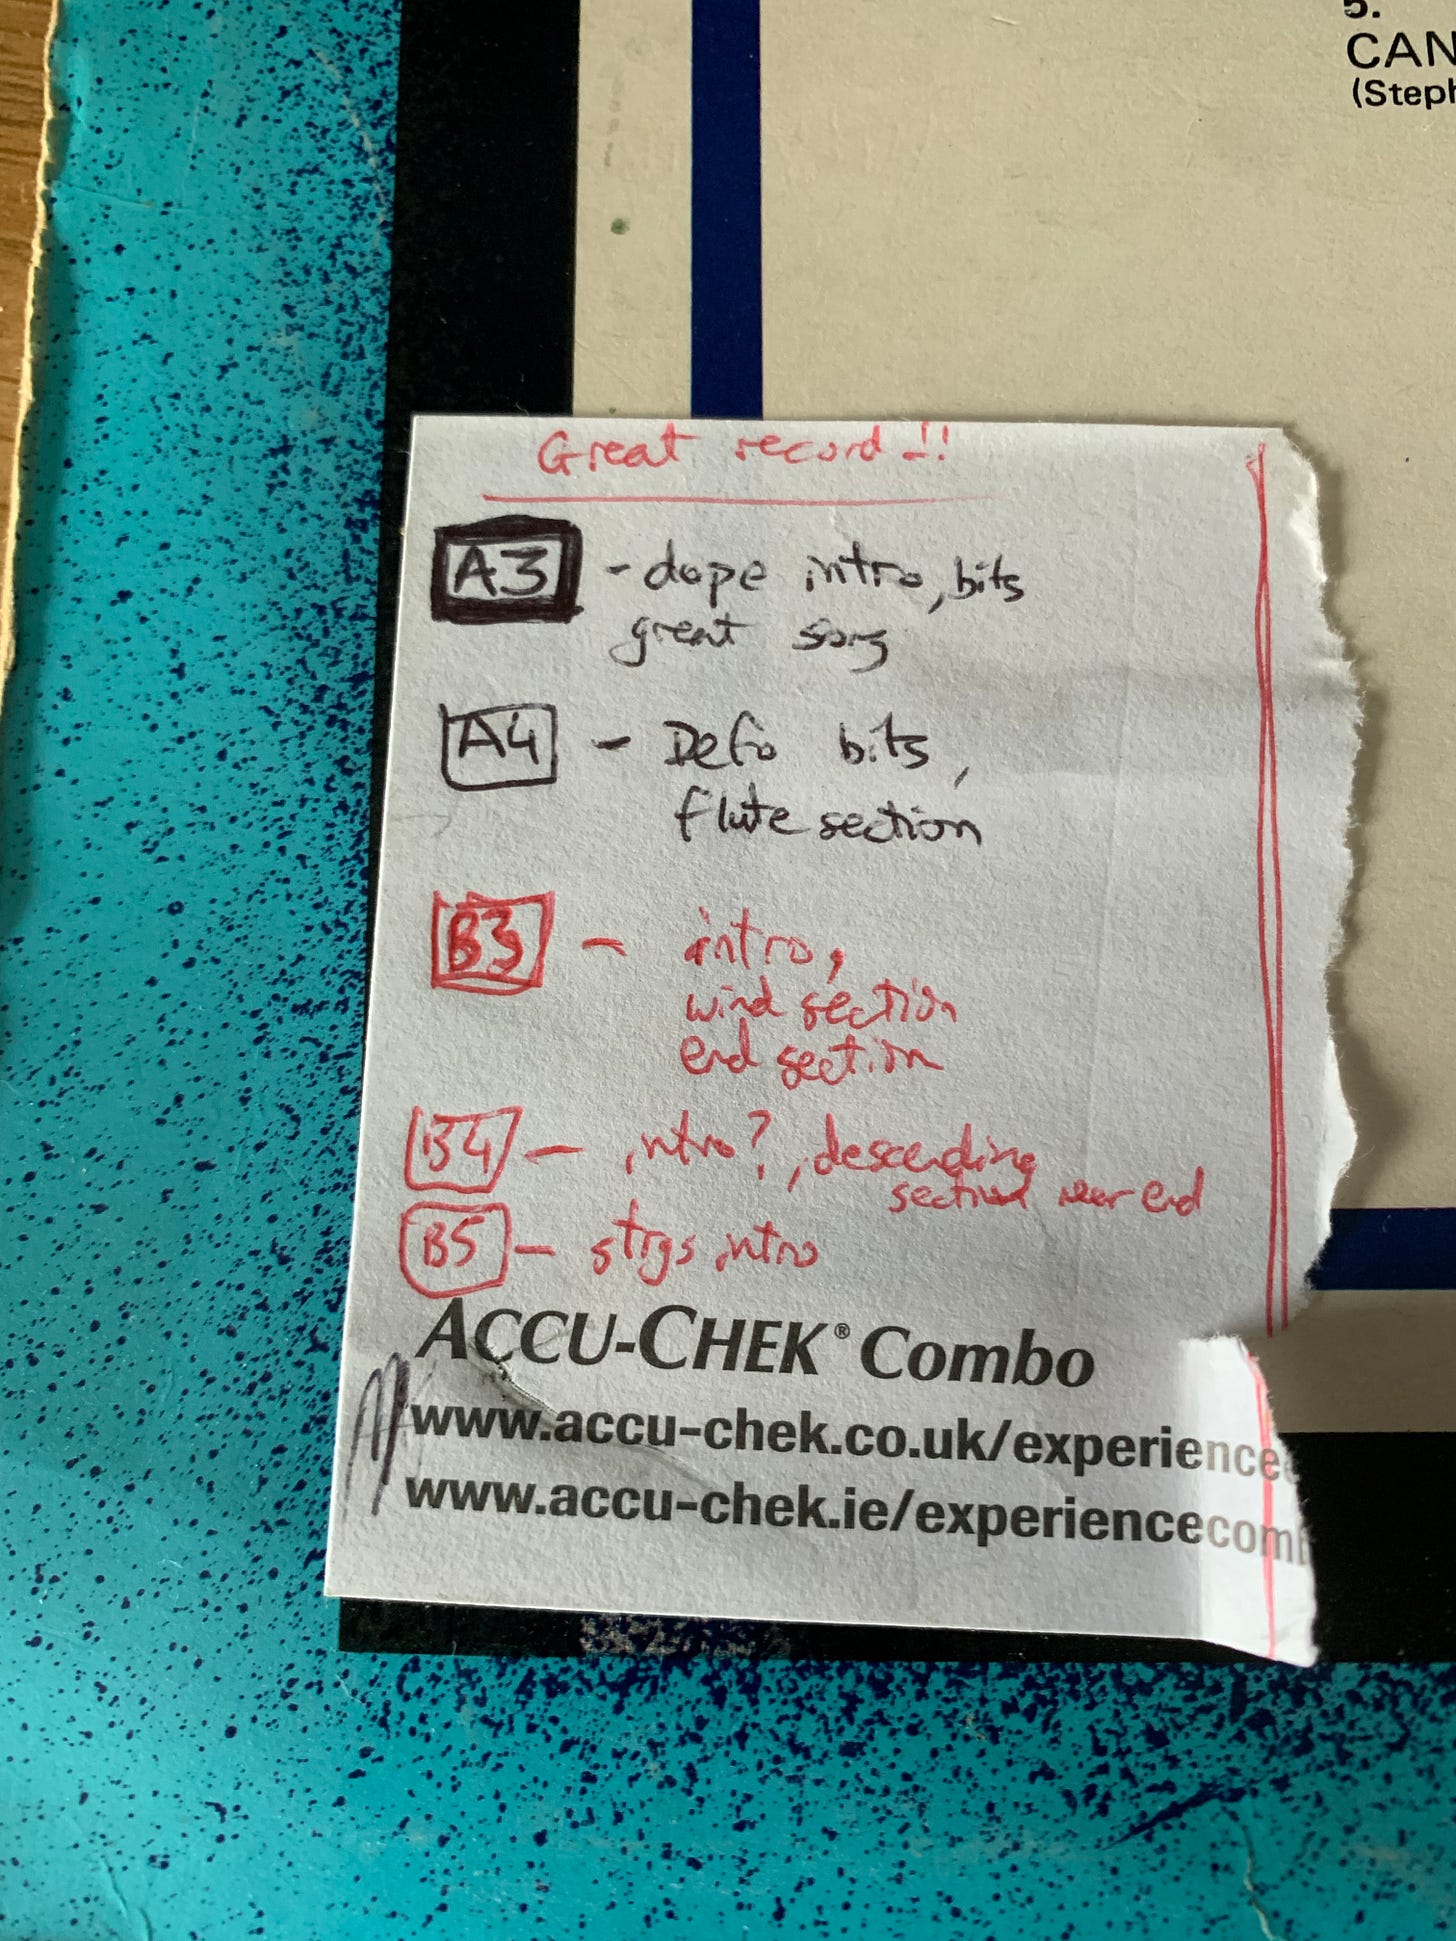 5.
CAN
(Steph
Great record!!
A3 - dope intro, bits
great song
A4 - Defo bits,
flute section
B3 - intro,
wind section
end section
B4 - intro?, descending
section near end
B5 - strgs intro
ACCU-CHEK® Combo
www.accu-chek.co.uk/experience
www.accu-chek.ie/experiencecom